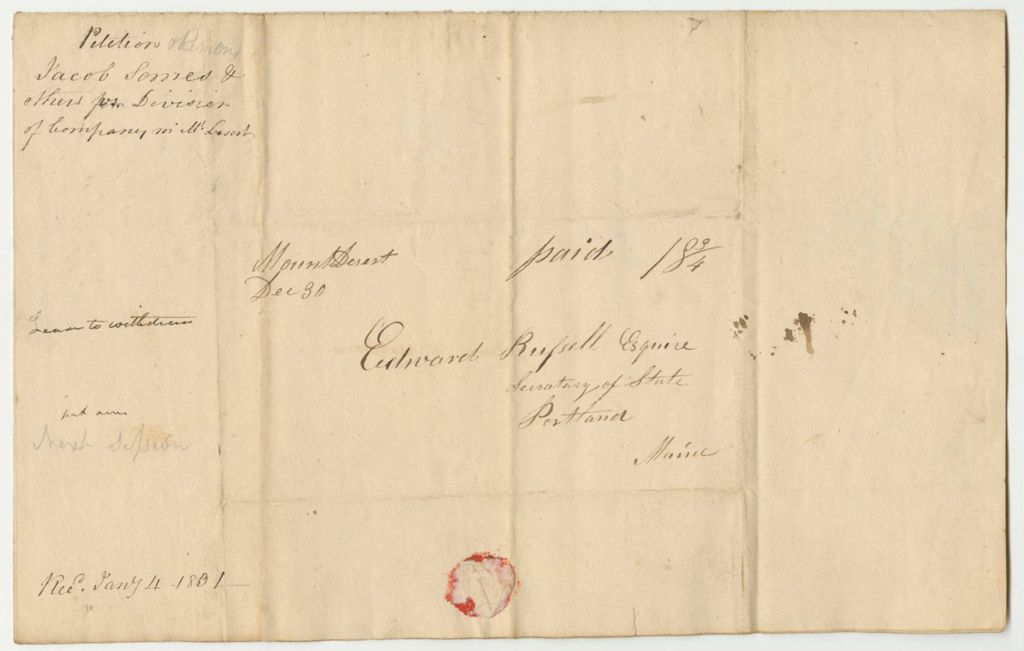 Petition
Jacob Somes &
others for Division
of Company in Mt. Desert
Mount Desert
Dec 30
paid 18 3/4
Edward Russell Esquire
Secretary of State
Portland
Maine
Leave to withdraw
put over
Next Session
Recd. Jany 4 1831